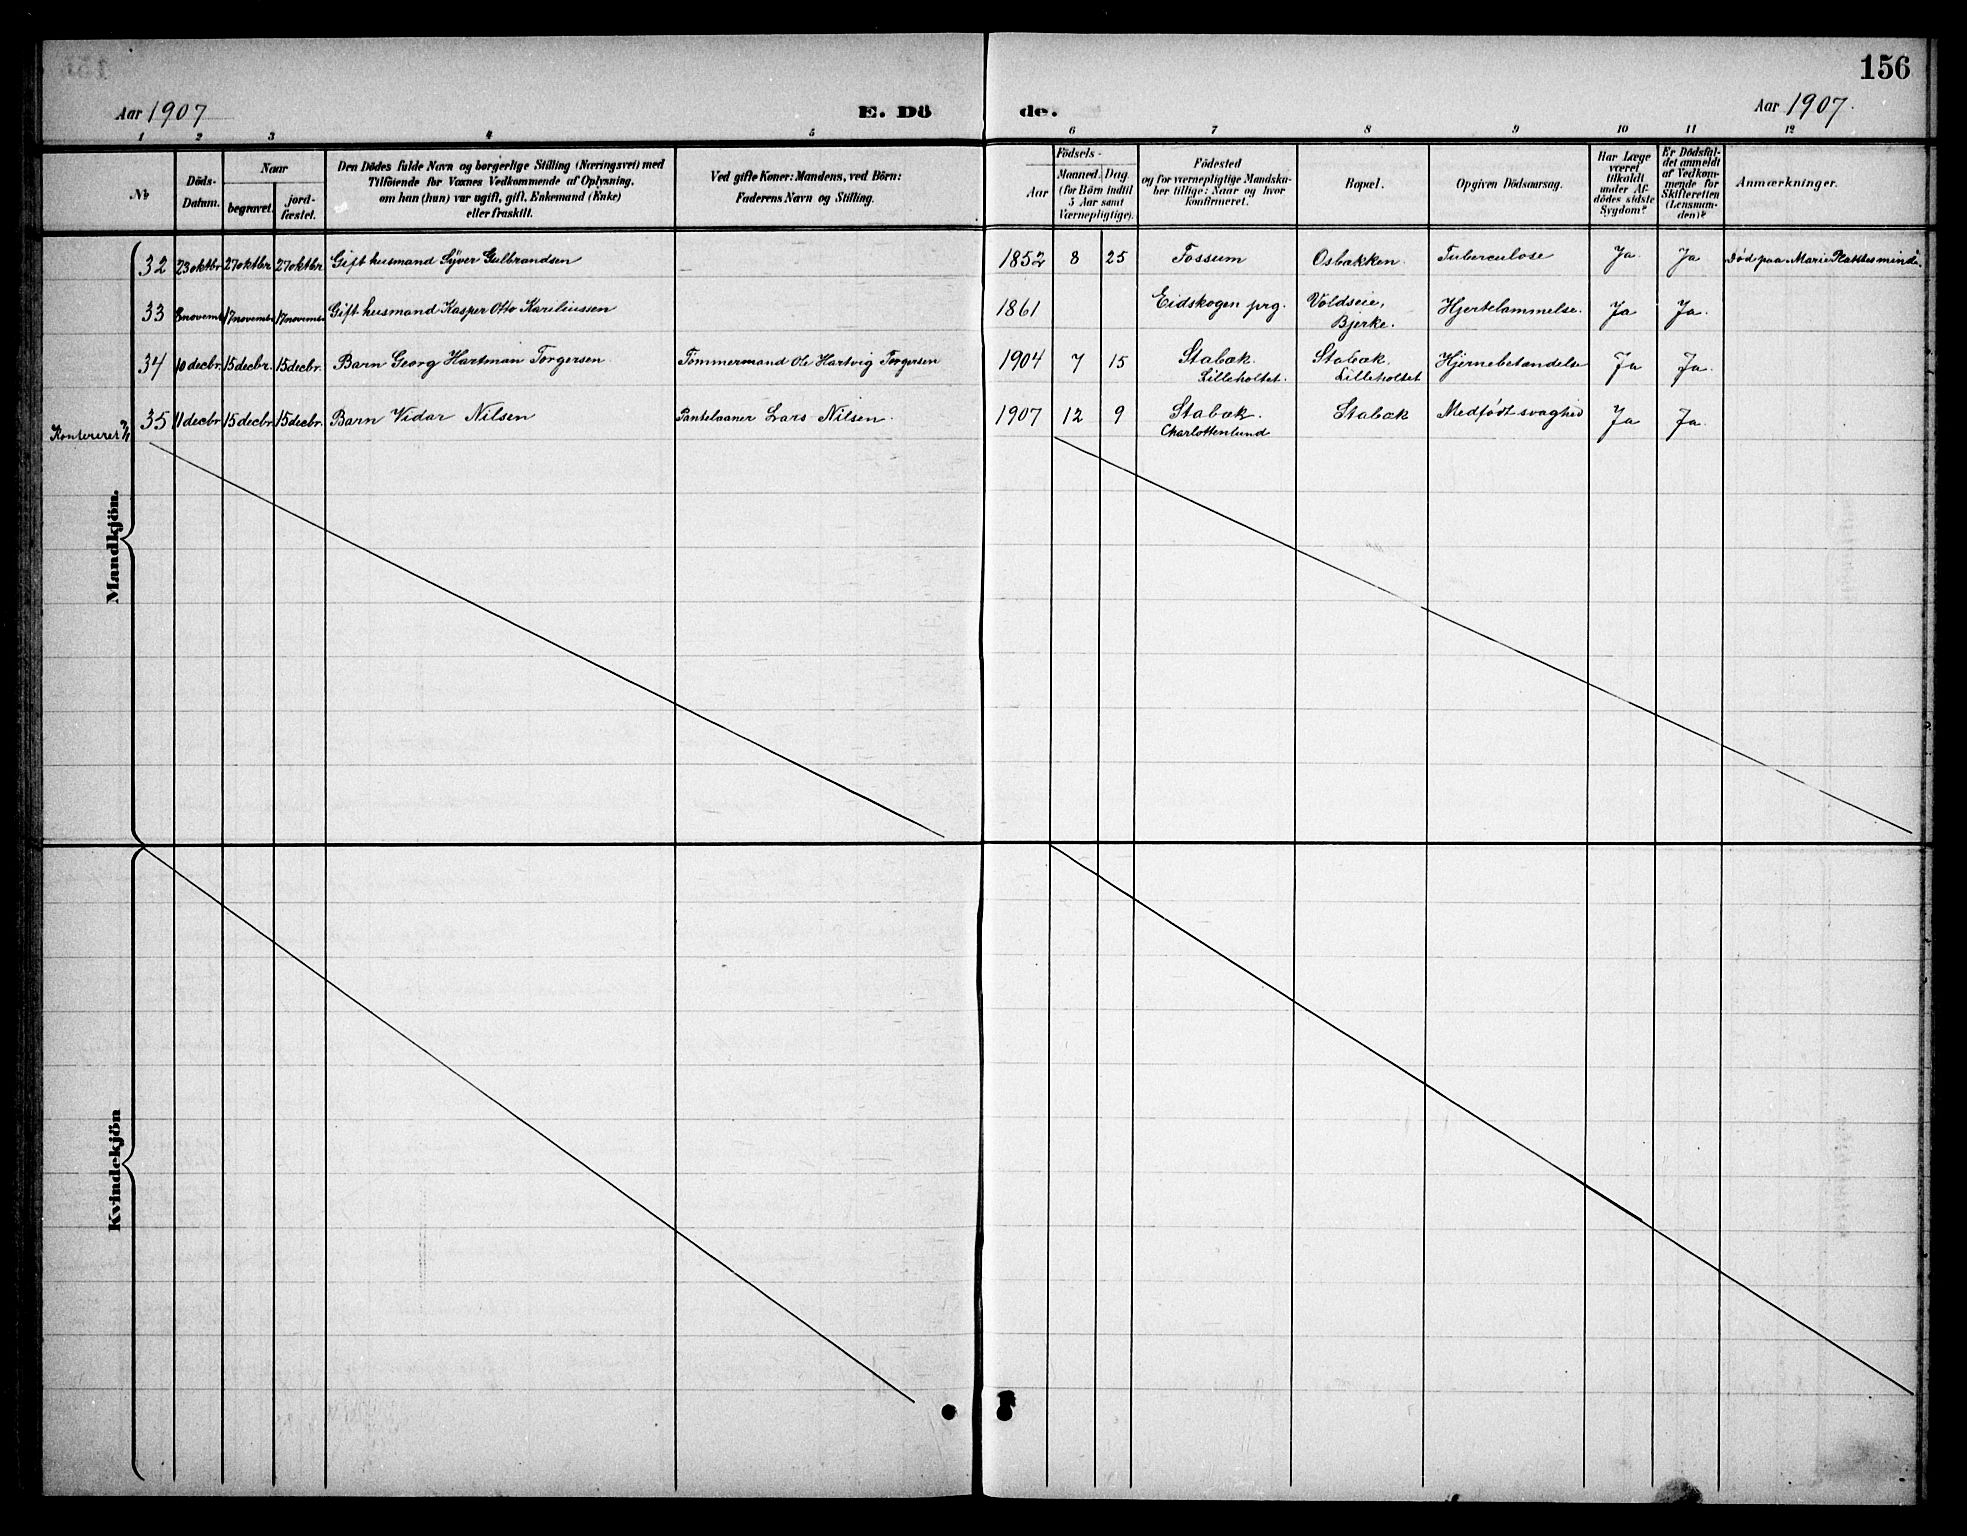 156
Aar 1907
E. Dö
de.
Aar 1907.
1 2 3 4 5 6 7 8 9 10 11 12
No
Döds-
Datum.
Naar
begravet.
jord-
fæstet.
Den Dödes fulde Navn og borgerlige Stilling (Næringsvei) med
Tilföiende for Voxnes Vedkommende af Oplysning,
om han (hun) var ugift, gift, Enkemand (Enke)
eller fraskilt.
Ved gifte Koner: Mandens, ved Börn:
Faderens Navn og Stilling.
Födsels-
Aar
Maaned.
Dag.
(for Börn indtil
5 Aar samt
Værnepligtige).
Födested
og for værnepligtige Mandska-
ber tillige: Naar og hvor
konfirmeret.
Bopæl.
Opgiven Dödsaarsag.
Har Læge
været
tilkaldt
under Af-
dödes sidste
Sygdom?
Er Dödsfal-
det anmeldt
af Vedkom-
mende for
Skifteretten
(Lensman-
den)?
Anmærkninger.
32 23 oktbr 27 oktbr 27 oktbr Gift husmand Syver Gulbrandsen 1852 8 25 Fossum Osbakken. Tuberculose Ja Ja Død paa Marie Plattes minde.
33 8 novemb. 17 novemb. 17 novemb. Gift husmand Kasper Otto Kariliussen 1861 Eidskogen prg. Voldseie, Hjertelammelse. Ja Ja.
Bjerke.
34 10 decbr. 15 decbr. 15 decbr. Barn Georg Hartman Torgersen. Tømmermand Ole Hartvig Torgersen 1904 7 15 Stabæk. Stabæk. Hjernebetændelse Ja Ja.
Lilleholtet. Lilleholtet
35 11 decbr 15 decbr. 15 decbr. Barn Vidar Nilsen Pantelaaner Lars Nilsen. 1907 12 9 Stabæk. Stabæk Medfødt svaghed Ja Ja.
Charlottenlund
Konteret
Mandkjön.
Kvindekjön